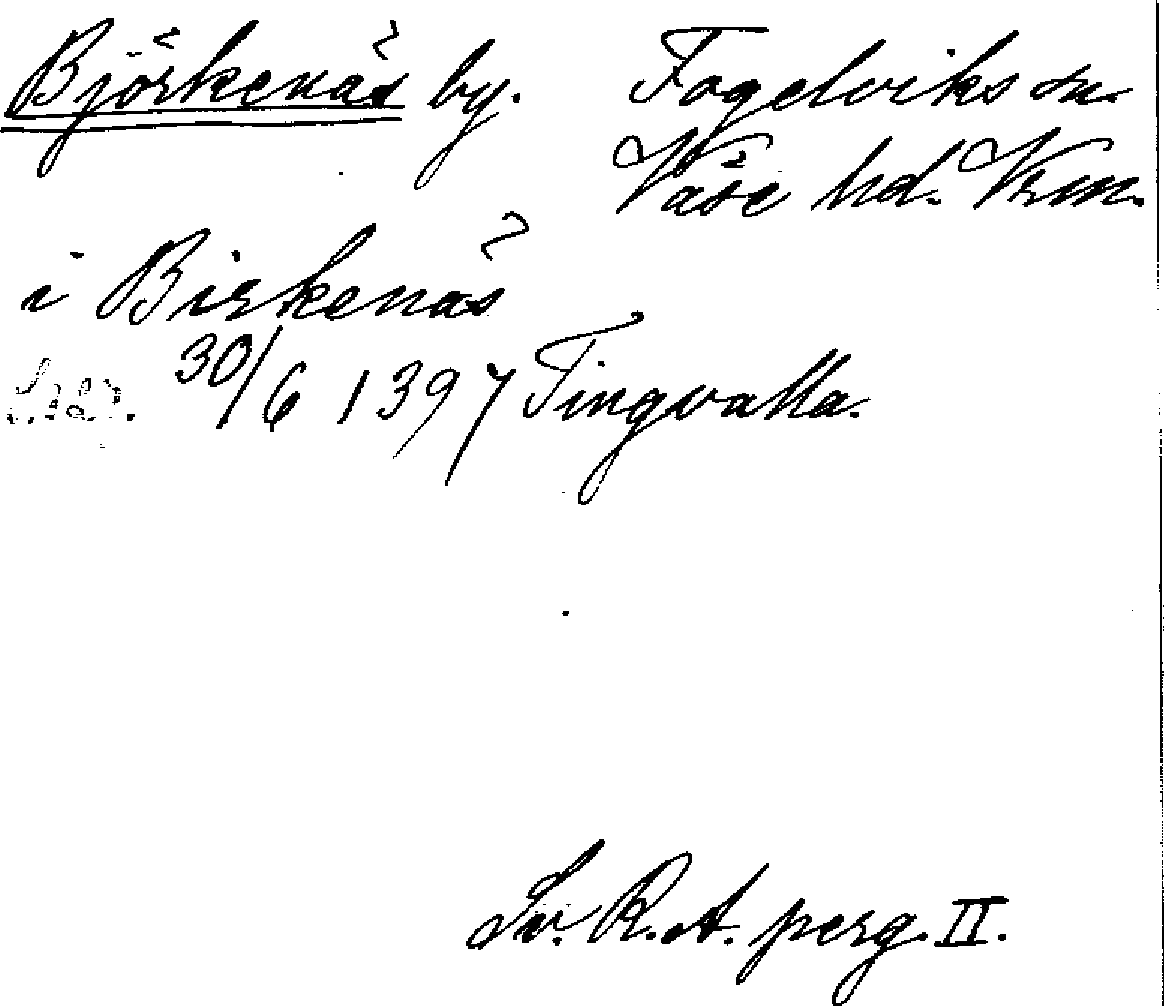 Björkenäs by. Fogelviks sn.
Väse hd. Vrm.
i Birkenäs
30/6 1397 Tingvalla.
Sv. R.A. perg. II.